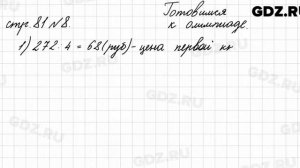 GDZ.RU
Готовимся
к олимпиаде.
стр. 81 №8.
1) 272:4 = 68(руб)-цена первой кн